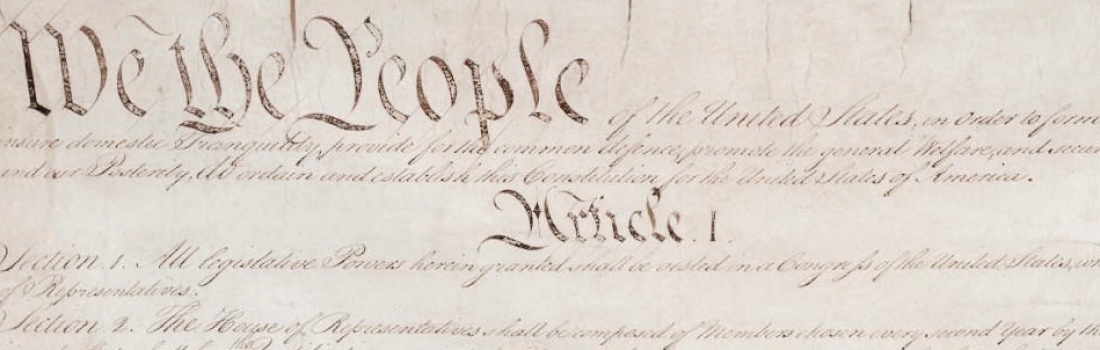 We the People of the United States, in Order to form
insure domestic Tranquility, provide for the common defence, promote the general Welfare, and secu
and our Posterity, do ordain and establish this Constitution for the United States of America.
Article. I.
Section. 1. All legislative Powers herein granted shall be vested in a Congress of the United States, wh
of Representatives.
Section. 2. The House of Representatives shall be composed of Members chosen every second Year by the